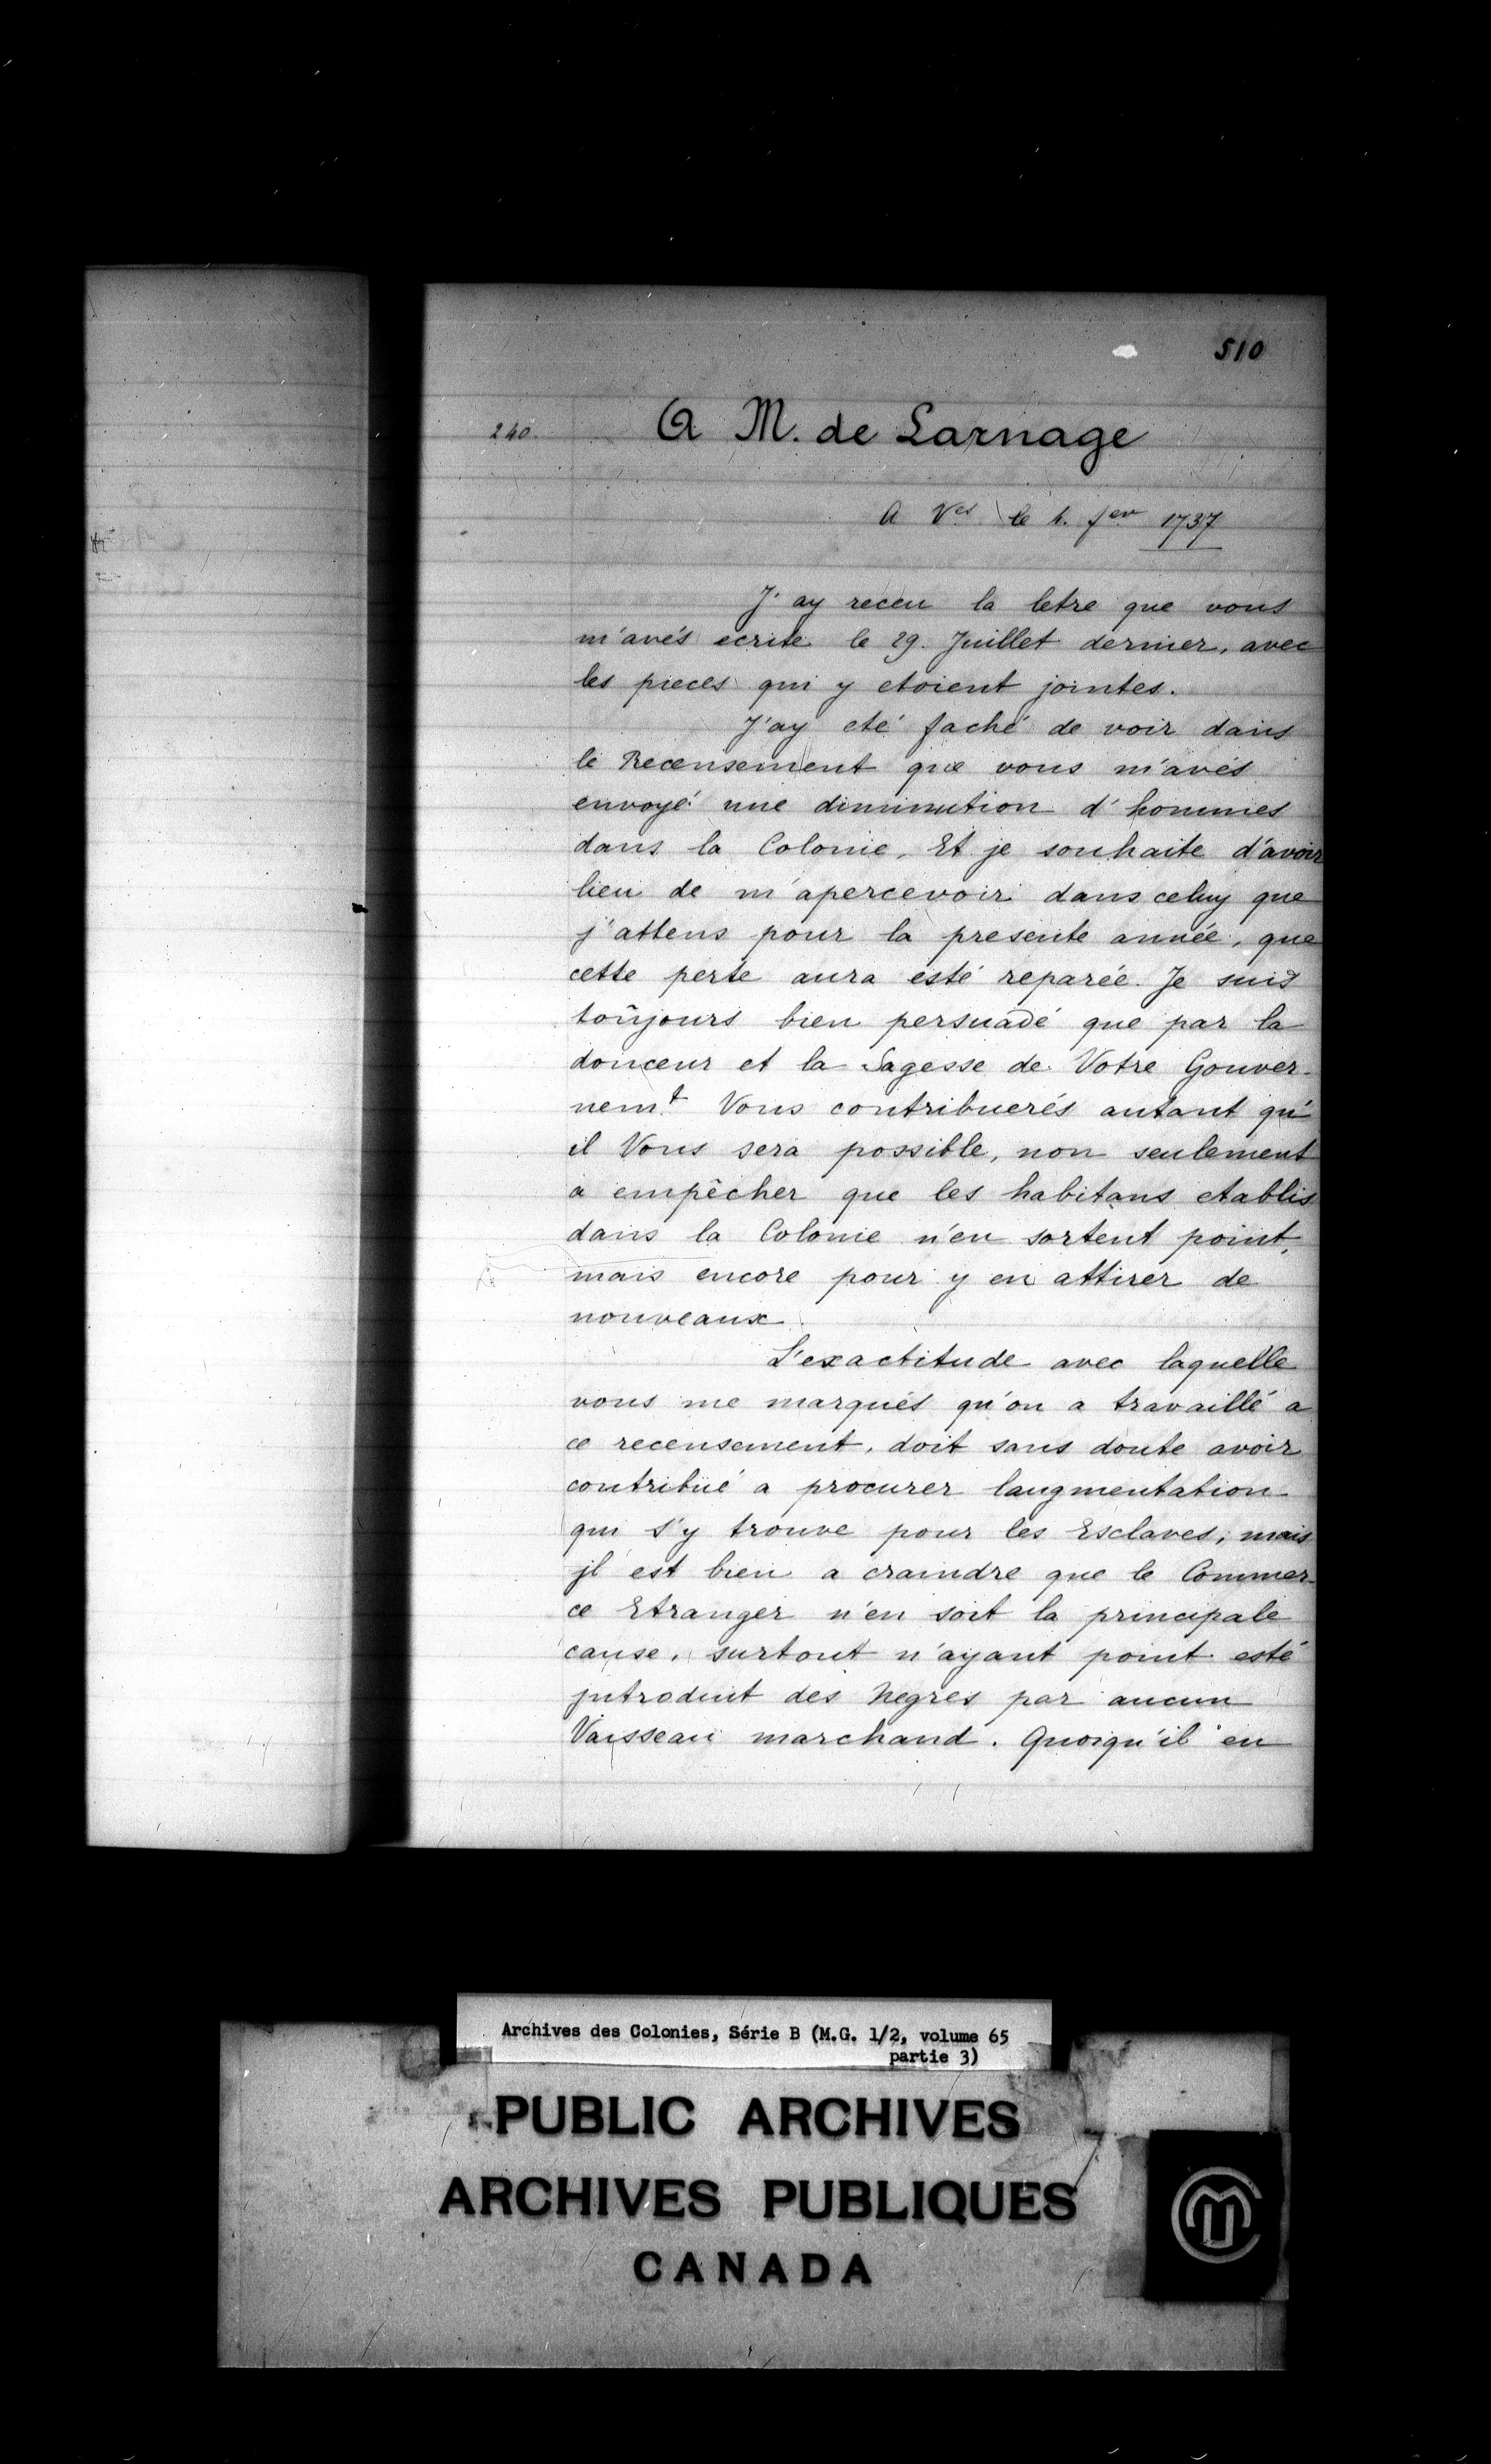 510
240.
A M. de Larnage
A Vles le 4. fer 1737
J'ay receu la letre que vous
m'avés ecrite le 29. Juillet dernier, avec
les pieces qui y etoient jointes.
J'ay eté faché de voir dans
le Recensement que vous m'avés
envoyé une diminution d'hommes
dans la Colonie, Et je souhaite d'avoir
lieu de m'apercevoir dans celuy que
j'attens pour la presente année, que
cette perte aura esté reparée. Je suis
toûjours bien persuadé que par la
douceur et la Sagesse de Votre Gouver-
nemt Vous contribuerés autant qu'
il Vous sera possible, non seulement
a empêcher que les habitans etablis
dans la Colonie n'en sortent point,
mais encore pour y en attirer de
nouveaux.
L'exactitude avec laquelle
vous me marqués qu'on a travaillé a
ce recensement, doit sans doute avoir
contribüé a procurer laugmentation
qui s'y trouve pour les Esclaves; mais
jl est bien a craindre que le Commer-
ce Etranger n'en soit la principale
cause, surtout n'ayant point esté
jntroduit des Negres par aucun
Vaisseau marchand. Quoiqu'il en
Archives des Colonies, Série B (M.G. 1/2, volume 65
partie 3)
PUBLIC ARCHIVES
ARCHIVES PUBLIQUES
CANADA